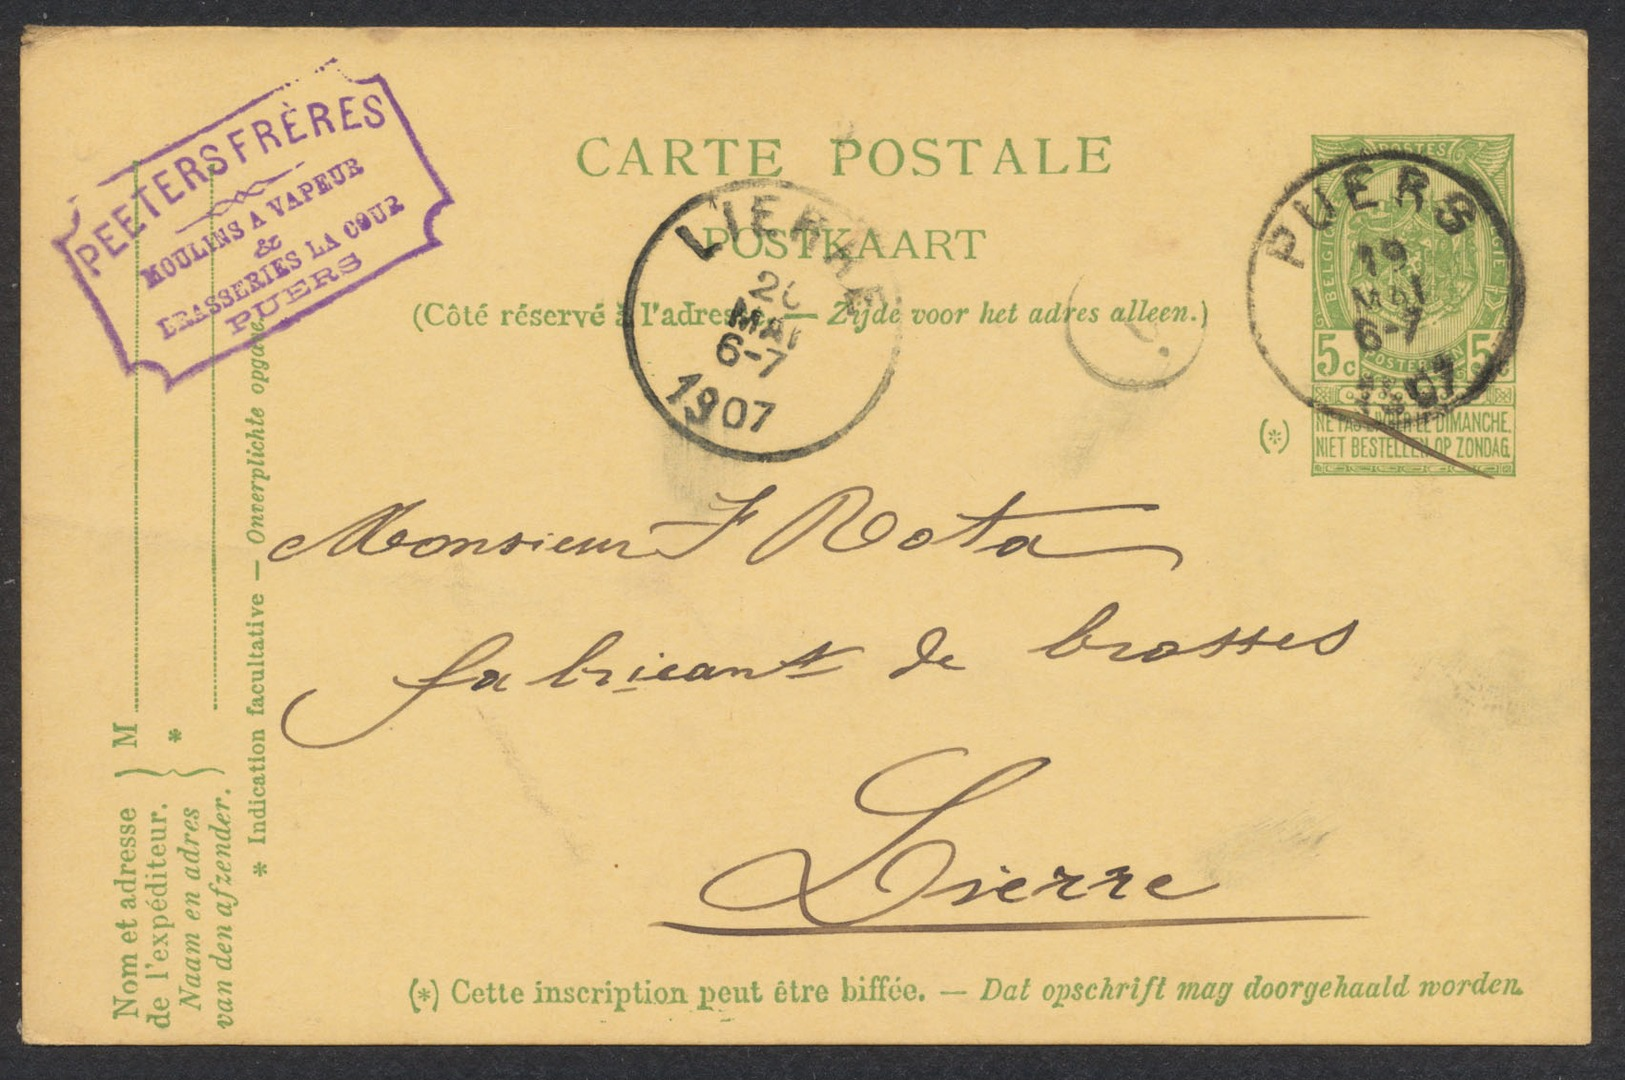 PEETERS FRÈRES
MOULINS A VAPEUR
&
BRASSERIES LA COUR
PUERS
CARTE POSTALE
POSTKAART
(Côté réservé à l'adresse. — Zijde voor het adres alleen.)
LIERRE
MAI
6-7
1907
POSTES
BELGIQUE
BELGIE
POSTERIJEN
5c 5c
NE PAS LIVRER LE DIMANCHE.
NIET BESTELLEN OP ZONDAG.
(*)
PUERS
19
MAI
6-7
1907
Monsieur F Rota
fabricant de brosses
Lierre
(*) Cette inscription peut être biffée. — Dat opschrift mag doorgehaald worden.
Nom et adresse
de l'expéditeur.
Naam en adres
van den afzender.
M
*
* Indication facultative — Onverplichte opgave.